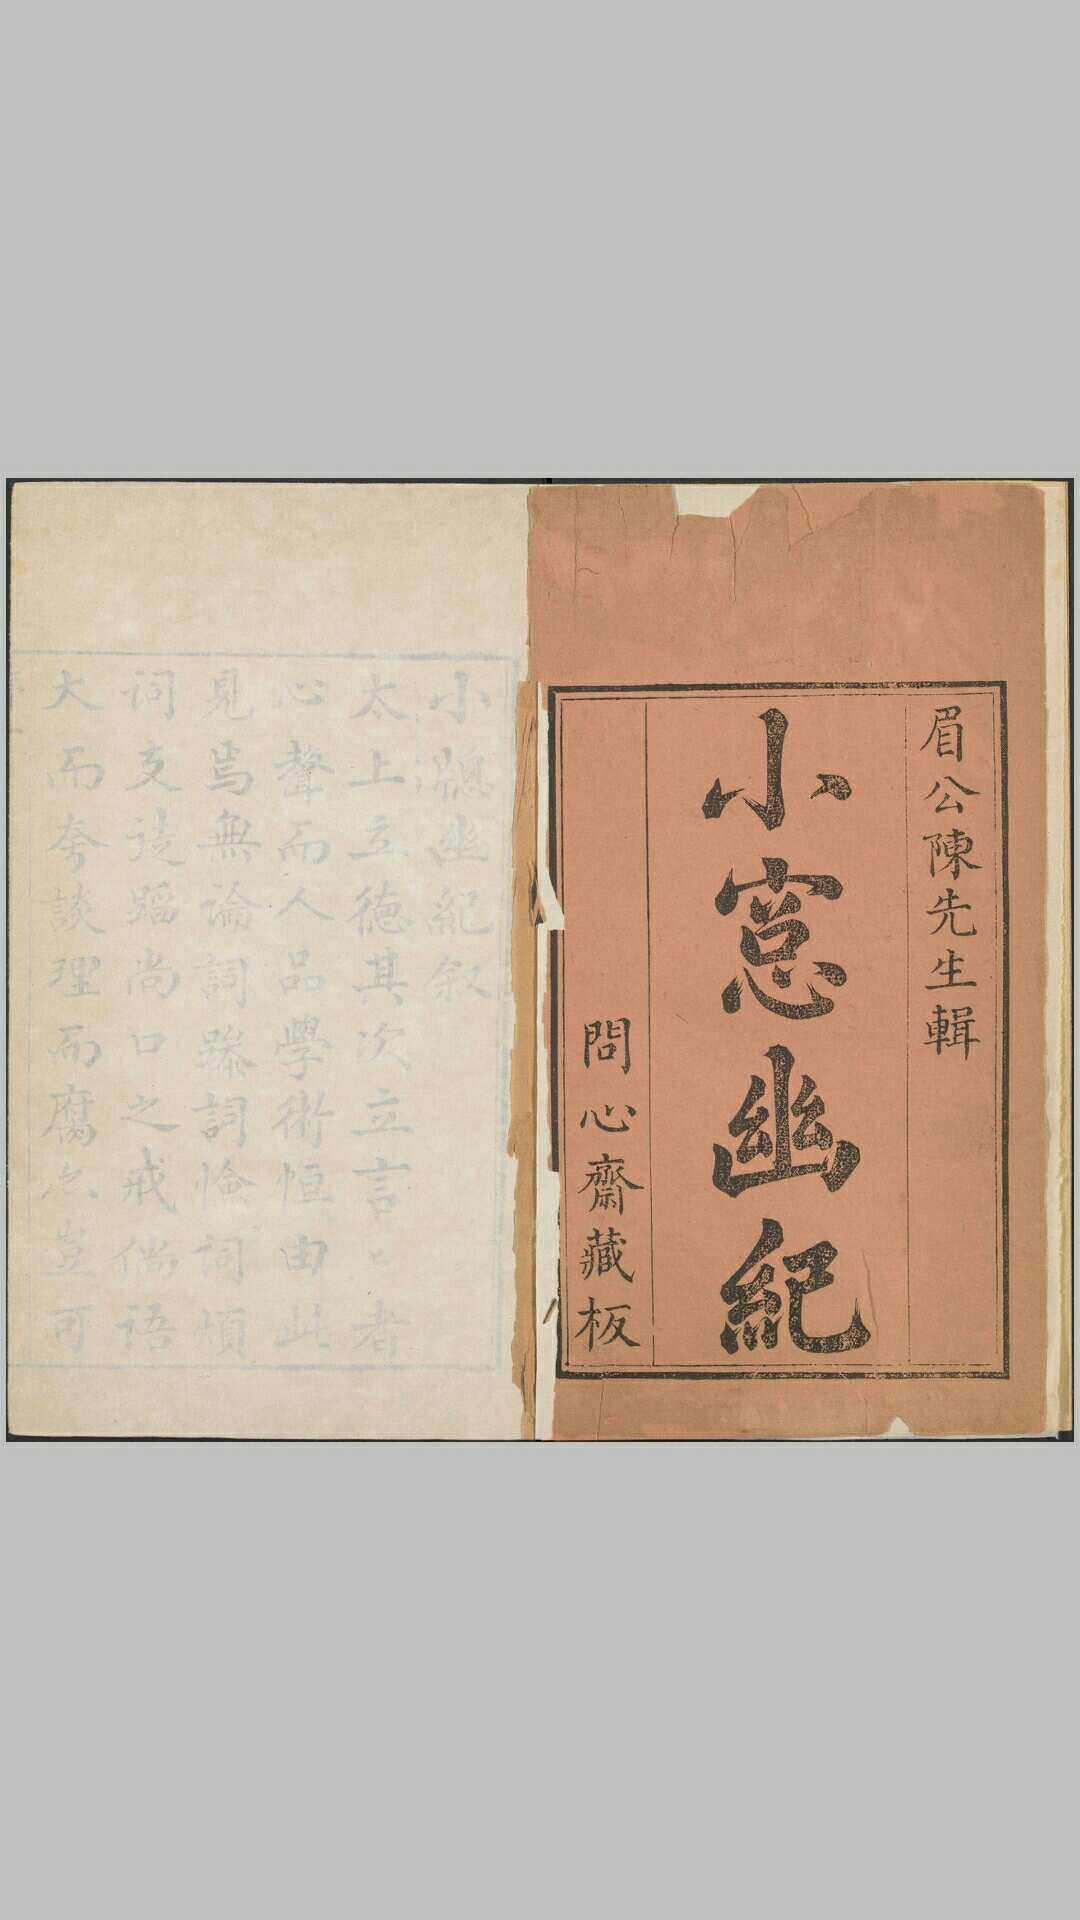 眉公陳先生輯
小窓幽紀
問心齋藏板
小牕幽紀叙
太上立德其次立言〻者
心聲而人品學術恒由此
見焉無論詞躁詞憸詞煩
詞支徒蹈尚口之戒倘語
大而夸談理而腐亦豈可